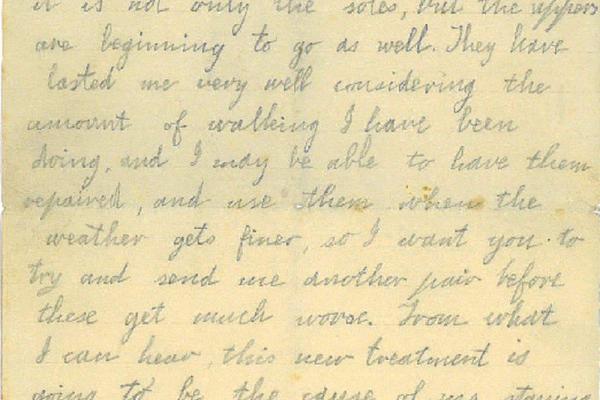 it is not only the soles, but the uppers
are beginning to go as well. They have
lasted me very well considering the
amount of walking I have been
doing, and I may be able to have them
repaired, and use them when the
weather gets finer, so I want you to
try and send me another pair before
these get much worse. From what
I can hear, this new treatment is
going to be the cause of my staying